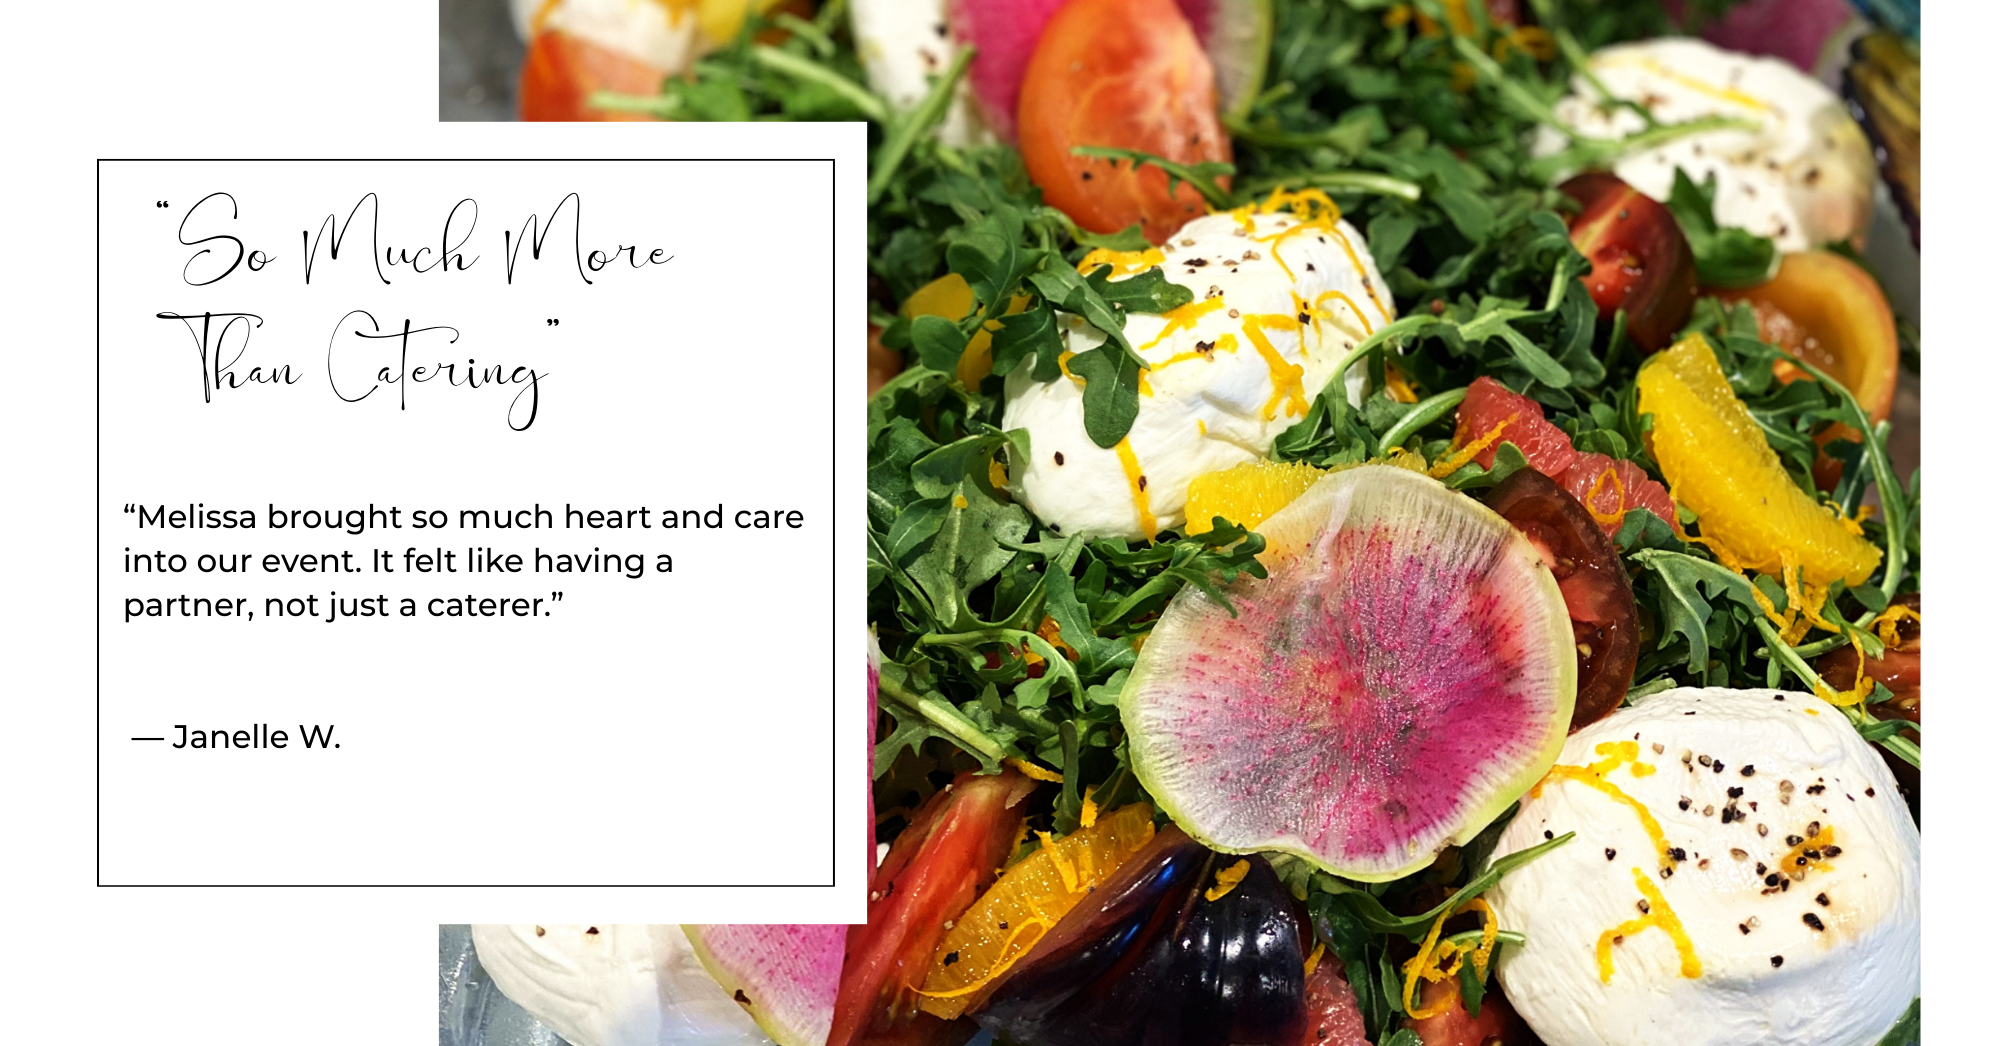 “So Much More
Than Catering”
“Melissa brought so much heart and care
into our event. It felt like having a
partner, not just a caterer.”
— Janelle W.